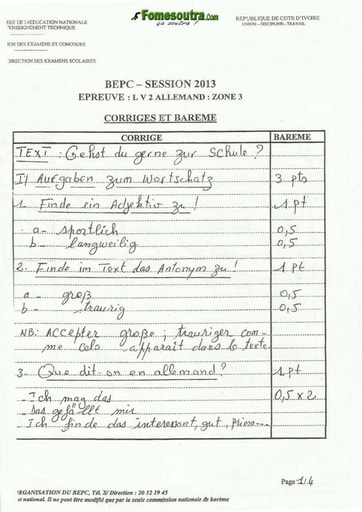 Fomesoutra.com
ça soutra !
REPUBLIQUE DE COTE D'IVOIRE
UNION – DISCIPLINE – TRAVAIL
ERE DE L'EDUCATION NATIONALE
'ENSEIGNEMENT TECHNIQUE
ION DES EXAMENS ET CONCOURS
DIRECTION DES EXAMENS SCOLAIRES
BEPC – SESSION 2013
EPREUVE : L V 2 ALLEMAND : ZONE 3
CORRIGES ET BAREME
CORRIGE BAREME
TEXT : Gehst du gerne zur Schule ?
I) Aufgaben zum Wortschatz 3 pts
1. Finde ein Adjektiv zu ! 1 pt
a- sportlich 0,5
b- langweilig 0,5
2. Finde im Text das Antonym zu ! 1 pt
a - groß 0,5
b - traurig 0,5
NB: ACCEPTER große ; trauriger com-
me cela apparait dans le texte
3- Que dit-on en allemand ? 1 pt
- Ich mag das 0,5 x 2
- Das gefällt mir
- Ich finde das interessant, gut, prima---
Page 1/4
RGANISATION DU BEPC, Tél. Direction : 20 32 19 45
et national. Il ne peut être modifié que par la seule commission nationale de barème